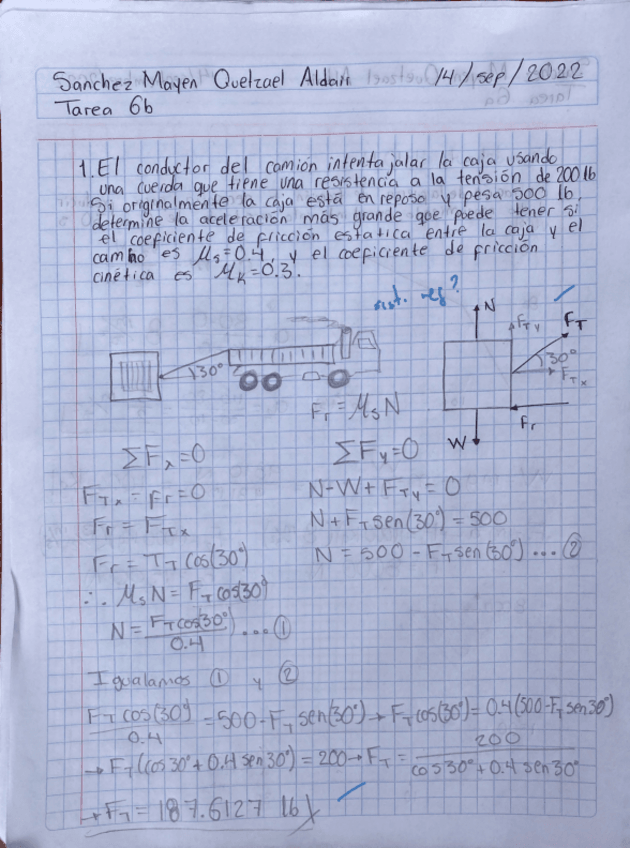 Sanchez Mayen Quetzael Aldair 14/sep/2022
Tarea 6b
1. El conductor del camión intenta jalar la caja usando
una cuerda que tiene una resistencia a la tensión de 200 lb
Si originalmente la caja está en reposo y pesa 500 lb,
determine la aceleración más grande que puede tener si
el coeficiente de fricción estatica entre la caja y el
camino es Ms=0.4, y el coeficiente de fricción
cinética es Mk=0.3.
N
FTy
FT
30°
FTx
30°
Fr = MsN
W
Fr
ΣFx=0
ΣFy=0
FTx - Fr = 0
N-W+FTy = 0
Fr = FTx
N+FTsen(30°) = 500
Fr = TT cos(30°)
N = 500 - FTsen(30°) ... ②
∴ MsN = FT cos(30°)
N = FTcos(30°)/0.4 ... ①
Igualamos ① y ②
FT cos(30°)/0.4 = 500-FT sen(30°) → FT cos(30°) = 0.4(500-FT sen30°)
→ FT(cos30° + 0.4 sen30°) = 200 → FT = 200/cos30° + 0.4 sen30°
→ FT = 187.6127 lb